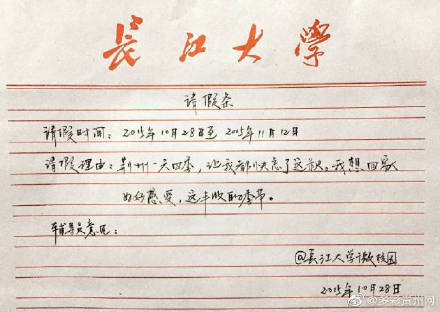 長江大學
请假条
请假时间：2015年10月28日至2015年11月12日
请假理由：荆州一天四季，让我都快忘了这秋。我想回家
好好感受，这丰收的季节。
辅导员意见：
@長江大学微校园
2015年10月28日
@多彩荆州网